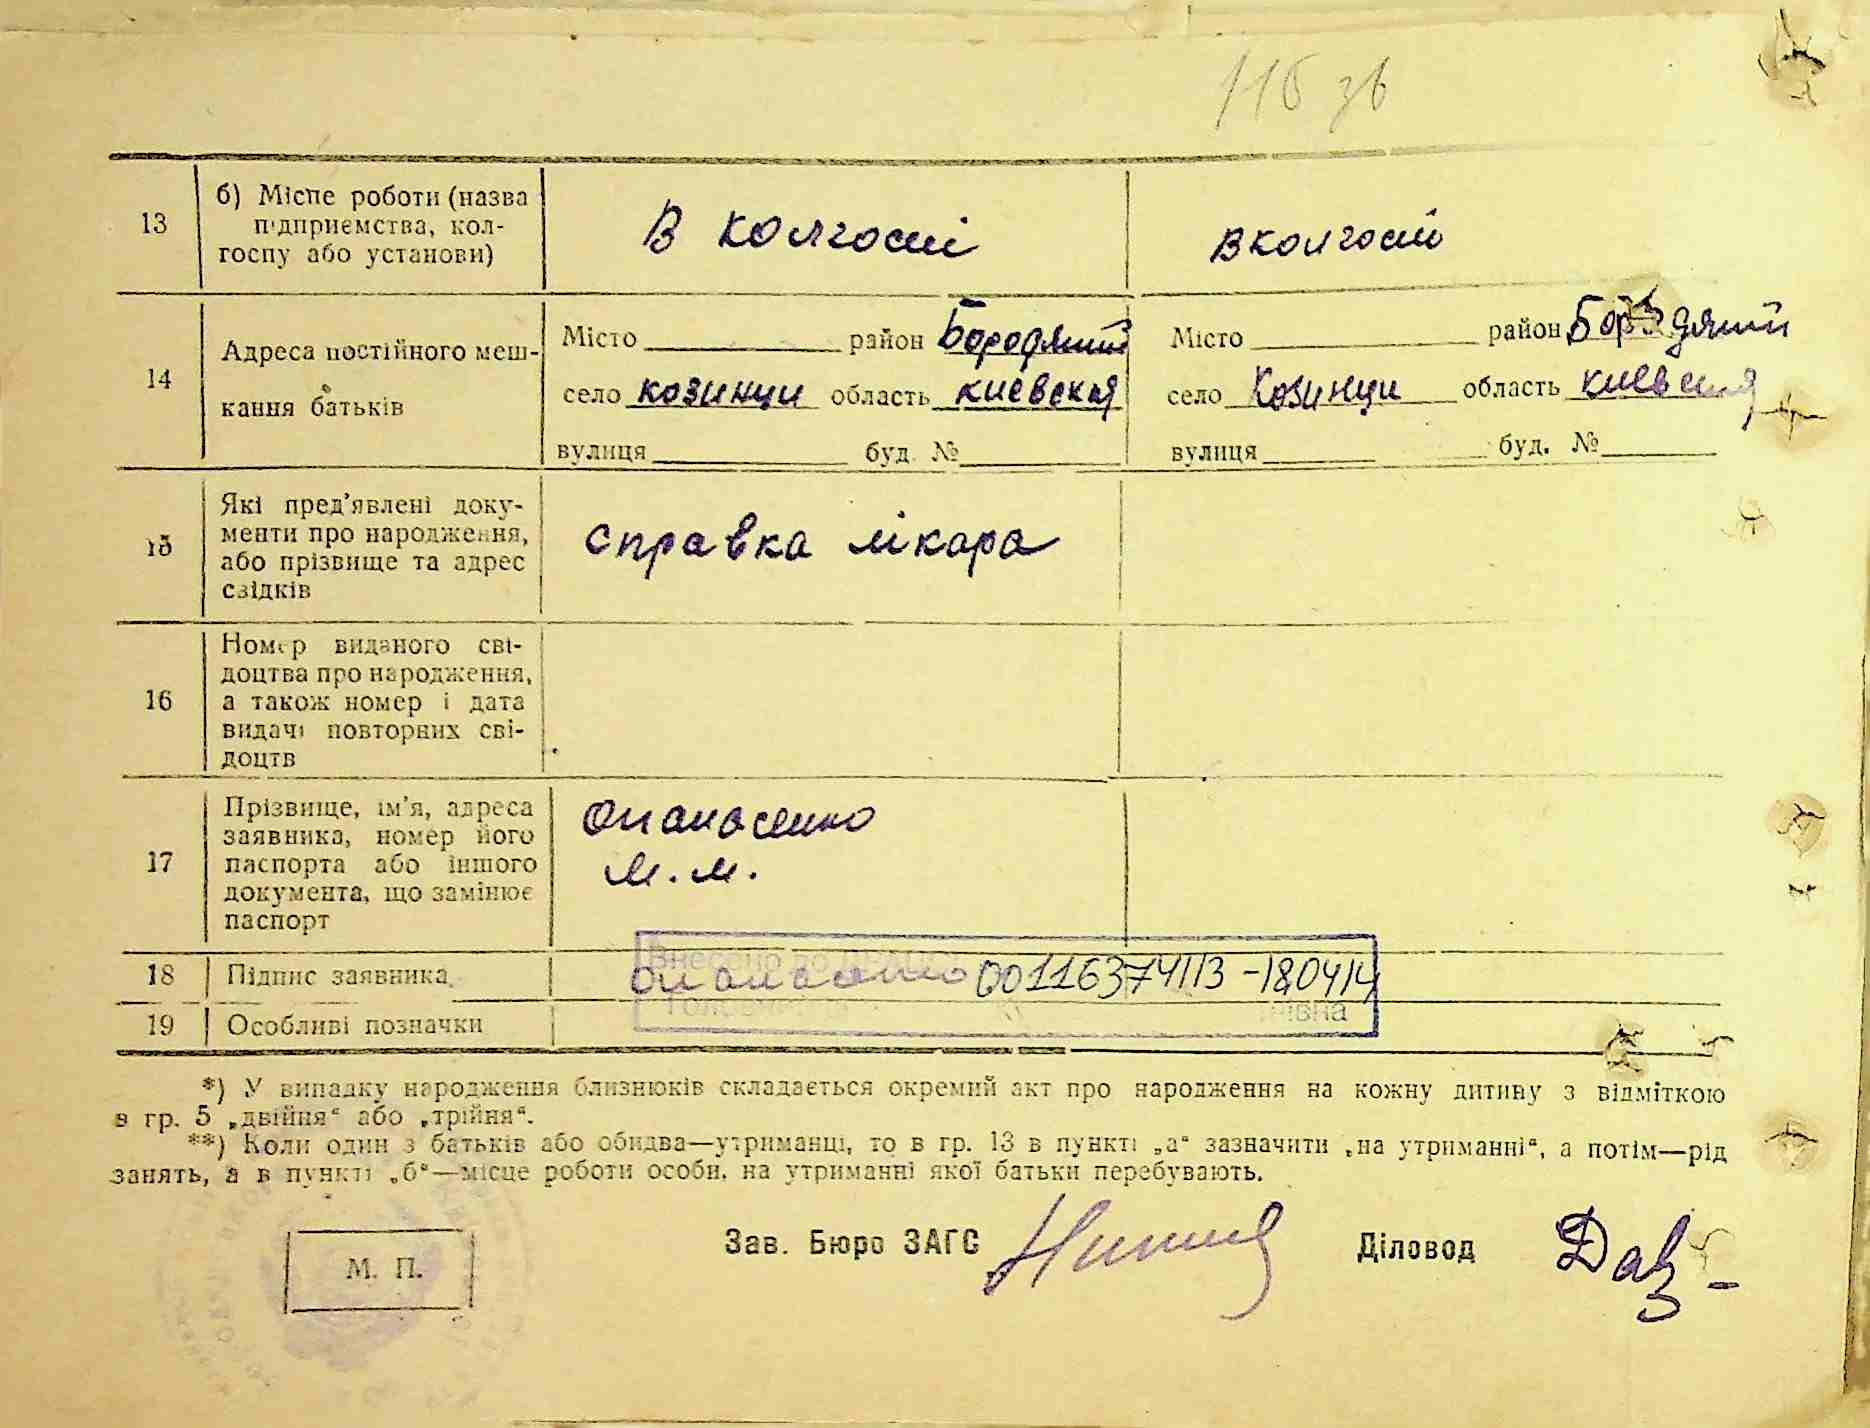 116 зв
13 б) Місце роботи (назва підприємства, колгоспу або установи) В колгоспі в колгоспі
14 Адреса постійного мешкання батьків
Місто район Бородянский Місто район Бородянский
село козинци область киевская село Козинци область киевская
вулиця буд. № вулиця буд. №
15 Які пред'явлені документи про народження, або прізвище та адрес свідків справка лікара
16 Номер виданого свідоцтва про народження, а також номер і дата видачі повторних свідоцтв
17 Прізвище, ім'я, адреса заявника, номер його паспорта або іншого документа, що замінює паспорт Опанасенко
М. М.
18 Підпис заявника Опанасенко 00116374113-180414
19 Особливі позначки
*) У випадку народження близнюків складається окремий акт про народження на кожну дитину з відміткою
в гр. 5 „двійня“ або „трійня“.
**) Коли один з батьків або обидва—утриманці, то в гр. 13 в пункті „а“ зазначити „на утриманні“, а потім—рід
занять, а в пункті „б“—місце роботи особи, на утриманні якої батьки перебувають.
М. П.
Зав. Бюро ЗАГС Діловод